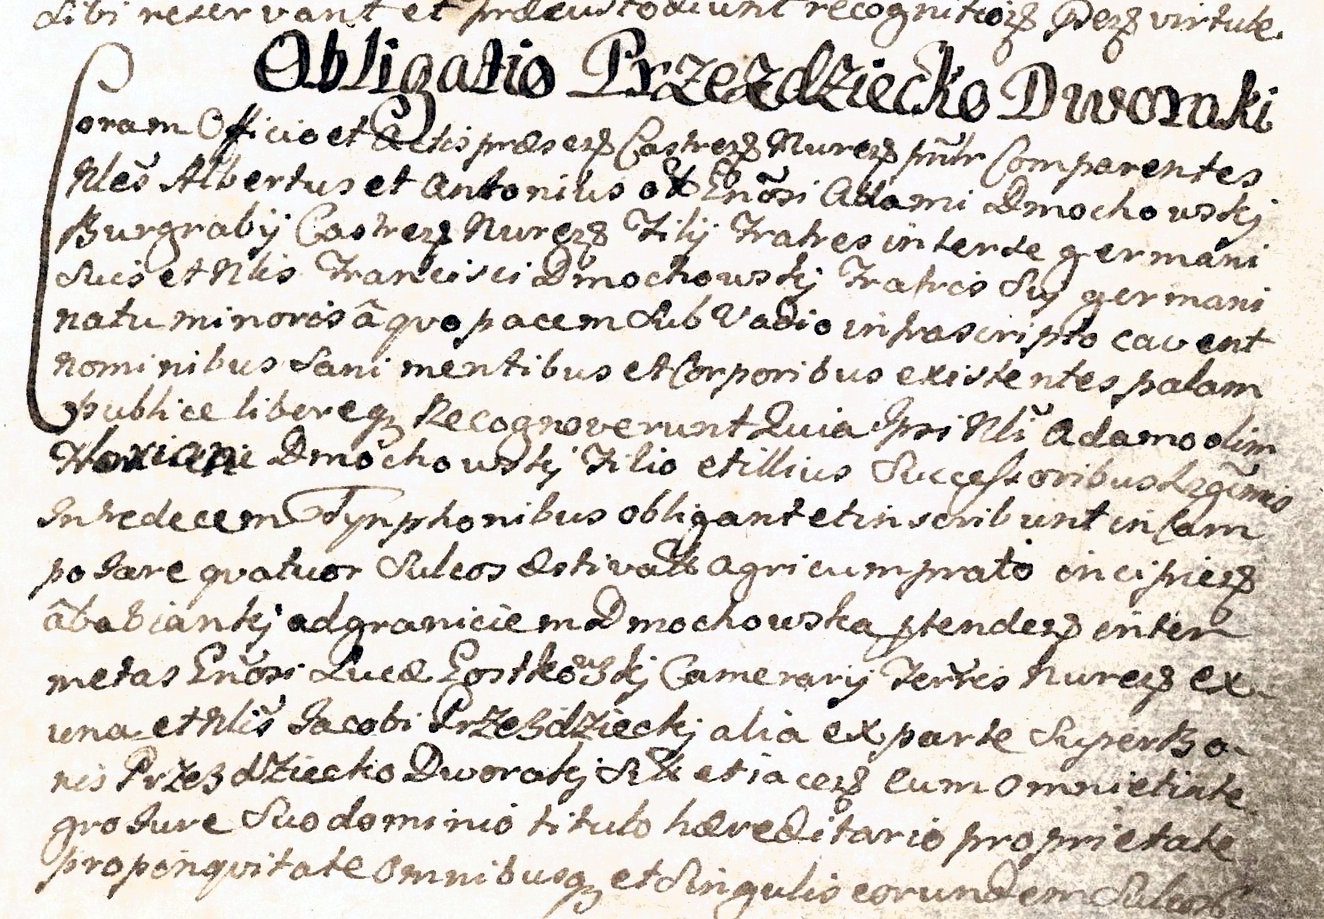 sibi reservant et præcustodiunt recognitioꝫ ꝑꝫ virtute.
Obligatio Przezdziecko Dworaki
Coram Officio et Actis præseꝫ Castreꝫ Nureꝫ pnłr Comparentes
Nles Albertus et Antonius olim Gnosi Adami Dmochowskj
Burgrabij Castreꝫ Nureꝫ Filij Fratres interse germani
suis et Nlis Francisci Dmochowskj Fratris sui germani
natu minoris à quo pacem sub Vadio infrascripto cavent
nominibus sani mentibus et Corporibus existentes palam
publice libereqꝫ Recognoverunt Quia Ipsi Nli Adamo olim
Dmochowskj Filio et illius Successoribus Legitimis
In sedecem Tynphonibus obligant et inscribunt in Cam
po Jare qvatuor sulcos æstivales agri cum prato incipieꝫ
à babiankj ad graniciem Dmochowska ꝑtendeꝫ inter
metas Gnosi Lucæ Gostkowskj Camerarij Terris Nureꝫ ex
una et Nlis Jacobi Przezdzieckj alia ex parte super Bo-
nis Przezdziecko Dworakj sitos et iaceꝫ cum omni et inte
gro Jure suo dominio titulo hæreditario proprietate
propinqvitate omnibusqꝫ et singulis eorundem sulcos